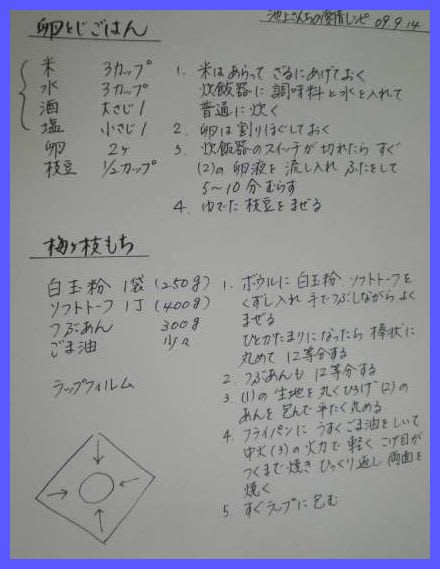 池上さんちの愛情レシピ 09.9.14
卵とじごはん
米 3カップ
水 3カップ
酒 大さじ1
塩 小さじ1
卵 2ケ
枝豆 1/2カップ
1. 米はあらって ざるにあげておく
炊飯器に 調味料と水を入れて
普通に炊く
2. 卵は割りほぐしておく
3. 炊飯器のスイッチが切れたら すぐ
(2)の卵液を 流し入れ ふたをして
5〜10分むらす
4. ゆでた 枝豆を まぜる
梅ヶ枝もち
白玉粉 1袋(250g)
ソフトトーフ 1丁(400g)
つぶあん 300g
ごま油 少々
ラップフィルム
1. ボウルに 白玉粉 ソフトトーフを
くずし入れ 手でつぶしながら よく
まぜる
ひとかたまりになったら 棒状に
丸めて 12等分する
2. つぶあんも 12等分する
3. (1)の 生地を 丸くひろげ (2)の
あんを 包んで 平たく丸める
4. フライパンに うすくごま油をしいて
中火(3)の火力で 軽く こげ目が
つくまで焼き ひっくり返し 両面を
焼く
5. すぐラップに包む